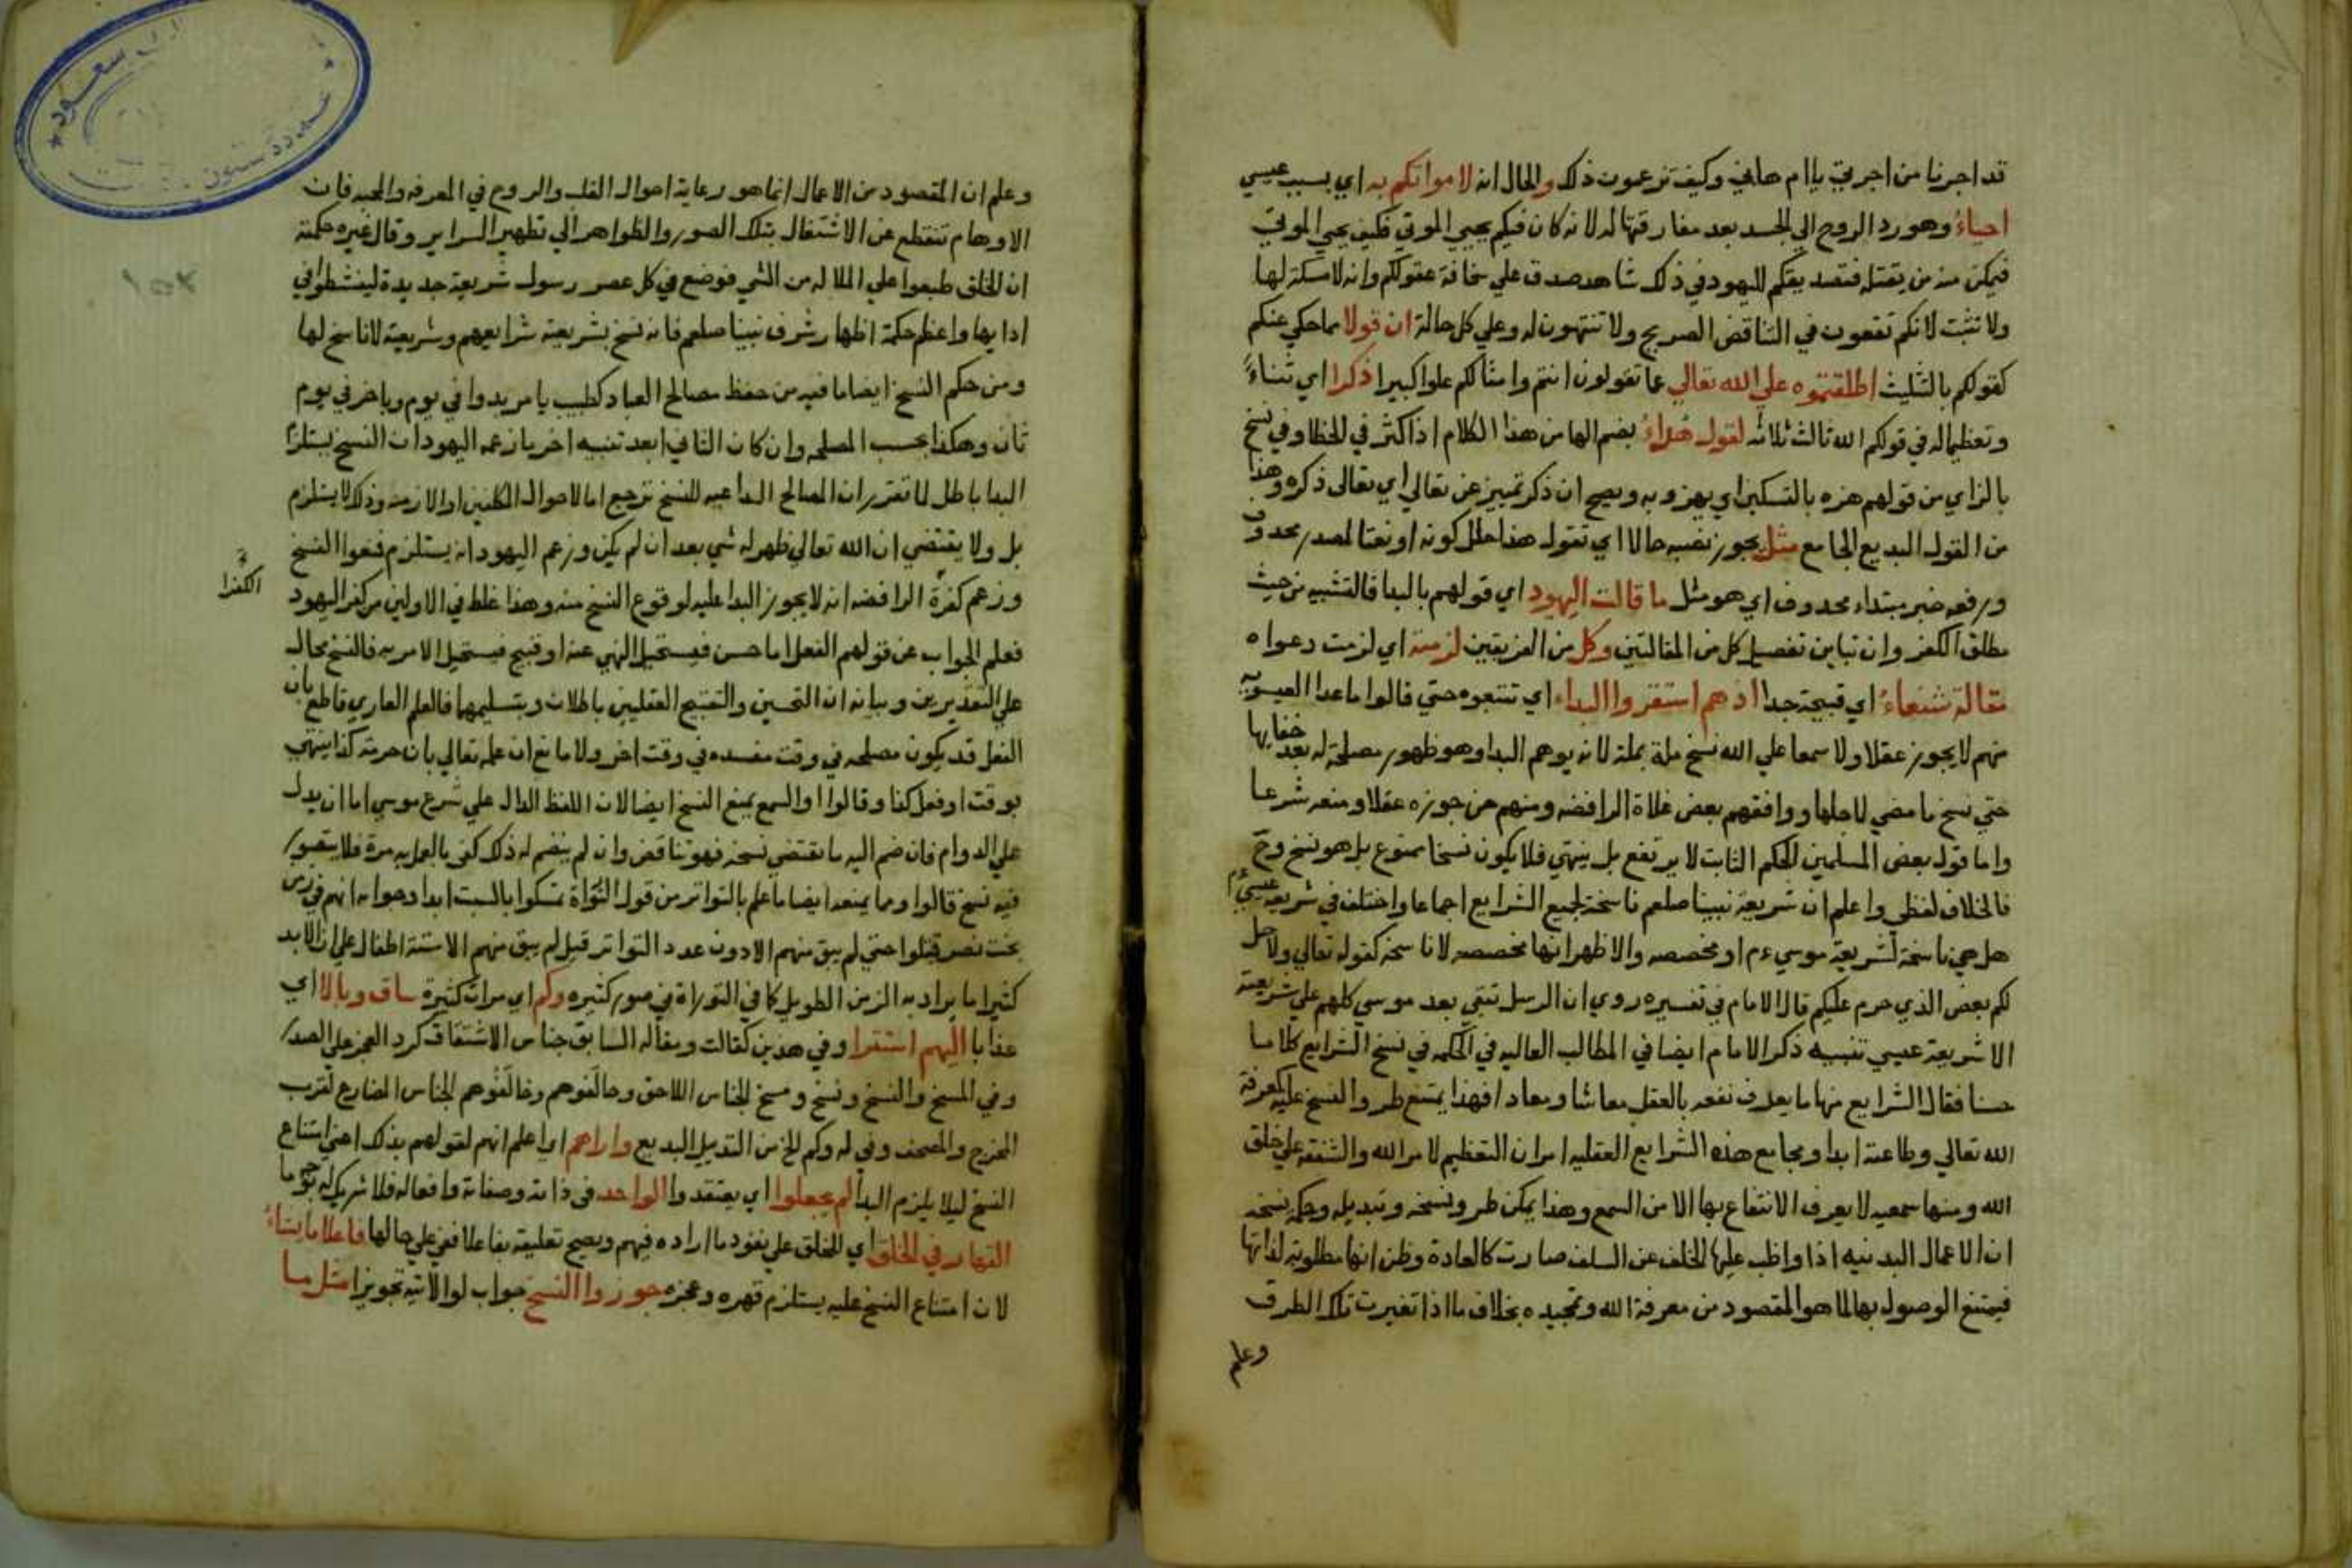 قد اجرنا من اجرتي يا ام هاني وكيف تزعمون ذلك والحال انه لامواتكم به اي بسبب عيسي
احياء وهو رد الروح الي الجسد بعد مفارقتها له لانه كان فيكم يحيي الموتي فكيف يحيي الموتي
فيمكن منه من يقتله فتصديقكم لليهود في ذلك شاهد صدق علي سخافة عقولكم وانه لا مسكة لها
ولا تثبت لانكم تقعون في التناقض الصريح ولا تنتهون له وعلي كل حالة ان قولا مما حكي عنكم
كقولكم بالتثليث اطلقتموه علي الله تعالي عما تقولون انتم وامثالكم علوا كبيرا ذكرا اي ثناءً
وتعظيما له في قولكم الله ثالث ثلاثه لقول هُراءُ بضم الها من هذا الكلام اذا كثر في الخطا وفي نسخ
بالزاي من قولهم هزه بالتسكين اي يهزو به ويصح ان ذكر تمييز عن تعالي اي تعالى ذكره وهذا
من القول البديع الجامع مثل يجوز نصبه حالا اي تقول هذا حال كونه او نعتا لمصدر محذوف
ورفعه خبر مبتداء محذوف اي هو مثل ما قالت اليهود اي قولهم بالبدا فالتشبيه من حيث
مطلق الكفر وان تباين تفصيل كل من المقالتين وكل من الفريقين لزمته اي لزمت دعواه
مقالة شنعاءُ اي قبيحة جدا اذ هم استقروا البداء اي تتبعوه حتي قالوا ما عدا العيسويه
منهم لا يجوز عقلا ولا سمعا علي الله نسخ ملة بملة لانه يوهم البدا وهو ظهور مصلحة له بعد خفايها
حتي نسخ ما مضي لاجلها ووافقهم بعض غلاة الرافضه ومنهم من جوزه عقلا ومنعه شرعا
واما قول بعض المسلمين الحكم الثابت لا يرتفع بل ينتهي فلا يكون نسخا ممنوع بل هو نسخ وح
فالخلاف لفظي واعلم ان شريعة نبينا صلعم ناسخة لجميع الشرايع اجماعا واختلف في شريعة عيسي ءم
هل هي ناسخة لشريعة موسي ءم او مخصصه والاظهر انها مخصصه لا ناسخه كقوله تعالي ولاحل
لكم بعض الذي حرم عليكم قال الامام في تفسيره روي ان الرسل تتفي بعد موسي كلهم علي شريعته
الا شريعة عيسي تنبيه ذكر الامام ايضا في المطالب العاليه في الحكمه في نسخ الشرايع كلاما
حسنا فقال الشرايع منها ما يعرف نفعه بالعقل معاشا ومعادا فهذا يمتنع طرو النسخ عليه كمعرفة
الله تعالي وطاعته ابدا ومجامع هذه الشرايع العقليه امران التعظيم لامر الله والشفقة علي خلق
الله ومنها سمعيه لا يعرف الانتفاع بها الا من السمع وهذا يمكن طرو نسخه وتبديله وحكمه نسخه
ان الاعمال البدنيه اذا واظب عليها الخلف عن السلف صارت كالعادة وظن انها مطلوبة لذاتها
فيمتنع الوصول بها لما هو المقصود من معرفة الله وتمجيده بخلاف ما اذا تغيرت تلك الطرق
وعلم
وعلم ان المقصود من الاعمال انما هو رعاية احوال القلب والروح في المعرفه والمحبه فان
الاوهام تنقطع عن الاشتغال بتلك الصور والظواهر الي تطهير السراير وقال غيره حكمته
ان الخلق طبعوا علي الملاله من الشي فوضع في كل عصر رسول شريعة جديدة لينشطوا في
ادايها واعظم حكمة اظهار شرف نبينا صلعم فانه نسخ بشريعته شرايعهم وشريعته لا ناسخ لها
ومن حكم النسخ ايضا ما فيه من حفظ مصالح العباد كطبيب يامر بدوا في يوم وباخر في يوم
ثان وهكذا بحسب المصلحه وان كان الثاني ابعد تنبيه اخر ما زعمه اليهود ان النسخ يستلزم
البدا باطل لما تقرر ان المصالح الداعيه للنسخ ترجع اما لاحوال المكلفين او الازمنه وذلك لا يستلزم
بل ولا يقتضي ان الله تعالي ظهر له شي بعد ان لم يكن وزعم اليهود انه يستلزم فنفوا النسخ
وزعم كفرة الرافضه انه لا يجوز البدا عليه لوقوع النسخ منه وهذا غلط في الاولين من كفر اليهود
الكفرا
فعلم الجواب عن قولهم الفعل اما حسن فيستحيل النهي عنه او قبيح فيستحيل الامر به فالنسخ محال
علي التقديرين وبيانه ان التحسين والتقبيح العقليين باطلان وبتسليمهما فالعلم العاري قاطع بان
الفعل قد يكون مصلحه في وقت مفسده في وقت اخر ولا مانع ان علمه تعالي بان حرمة كذا ينتهي
بوقت او فعل كذا وقالوا والسمع يمنع النسخ ايضا لان اللفظ الدال علي شرع موسي اما ان يدل
علي الدوام فان ضم اليه ما يقتضي نسخه فهو تناقض وان لم ينضم له ذلك كفى بالعمل به مرة فلا يتصور
فيه نسخ قالوا ومما يمنعه ايضا ما علم بالتواتر من قول التوراة تمسكوا بالسبت ابدا وجوابه انهم في زمن
بخت نصر قتلوا حتي لم يبق منهم الا دون عدد التواتر قيل لم يبق منهم الا ستة اطفال علي ان الابد
كثيرا ما يراد به الزمن الطويل كما في التوراة في صور كثيره وكم اي مرات كثيرة ساق وبالا اي
عذابا اليهم استقرا وفي هذين كقالت ومقاله السابق جناس الاشتقاق كرد العجز علي الصدر
وفي المسخ والنسخ ونسخ ومسخ الجناس اللاحق وحالفوهم وخالفوهم الجناس المضارع لقرب
المخرج والمصحف وفي له وكم الخ من التذييل البديع واراهم اي اعلم انهم لقولهم بذلك اعني امتناع
النسخ ليلا يلزم البدا لم يجعلوا اي يعتقدوا الواحد في ذاته وصفاته وافعاله فلا شريك له بوجه ما
القهار في الخلق اي للخلق علي نفوذ ما اراده فيهم ويصح تعليقه بفاعلا ففي علي حالها فاعلا ما يشاءُ
لان امتناع النسخ عليه يستلزم قهره وعجزه جوزوا النسخ جواب لو الاتيه تجويزا مثل ما